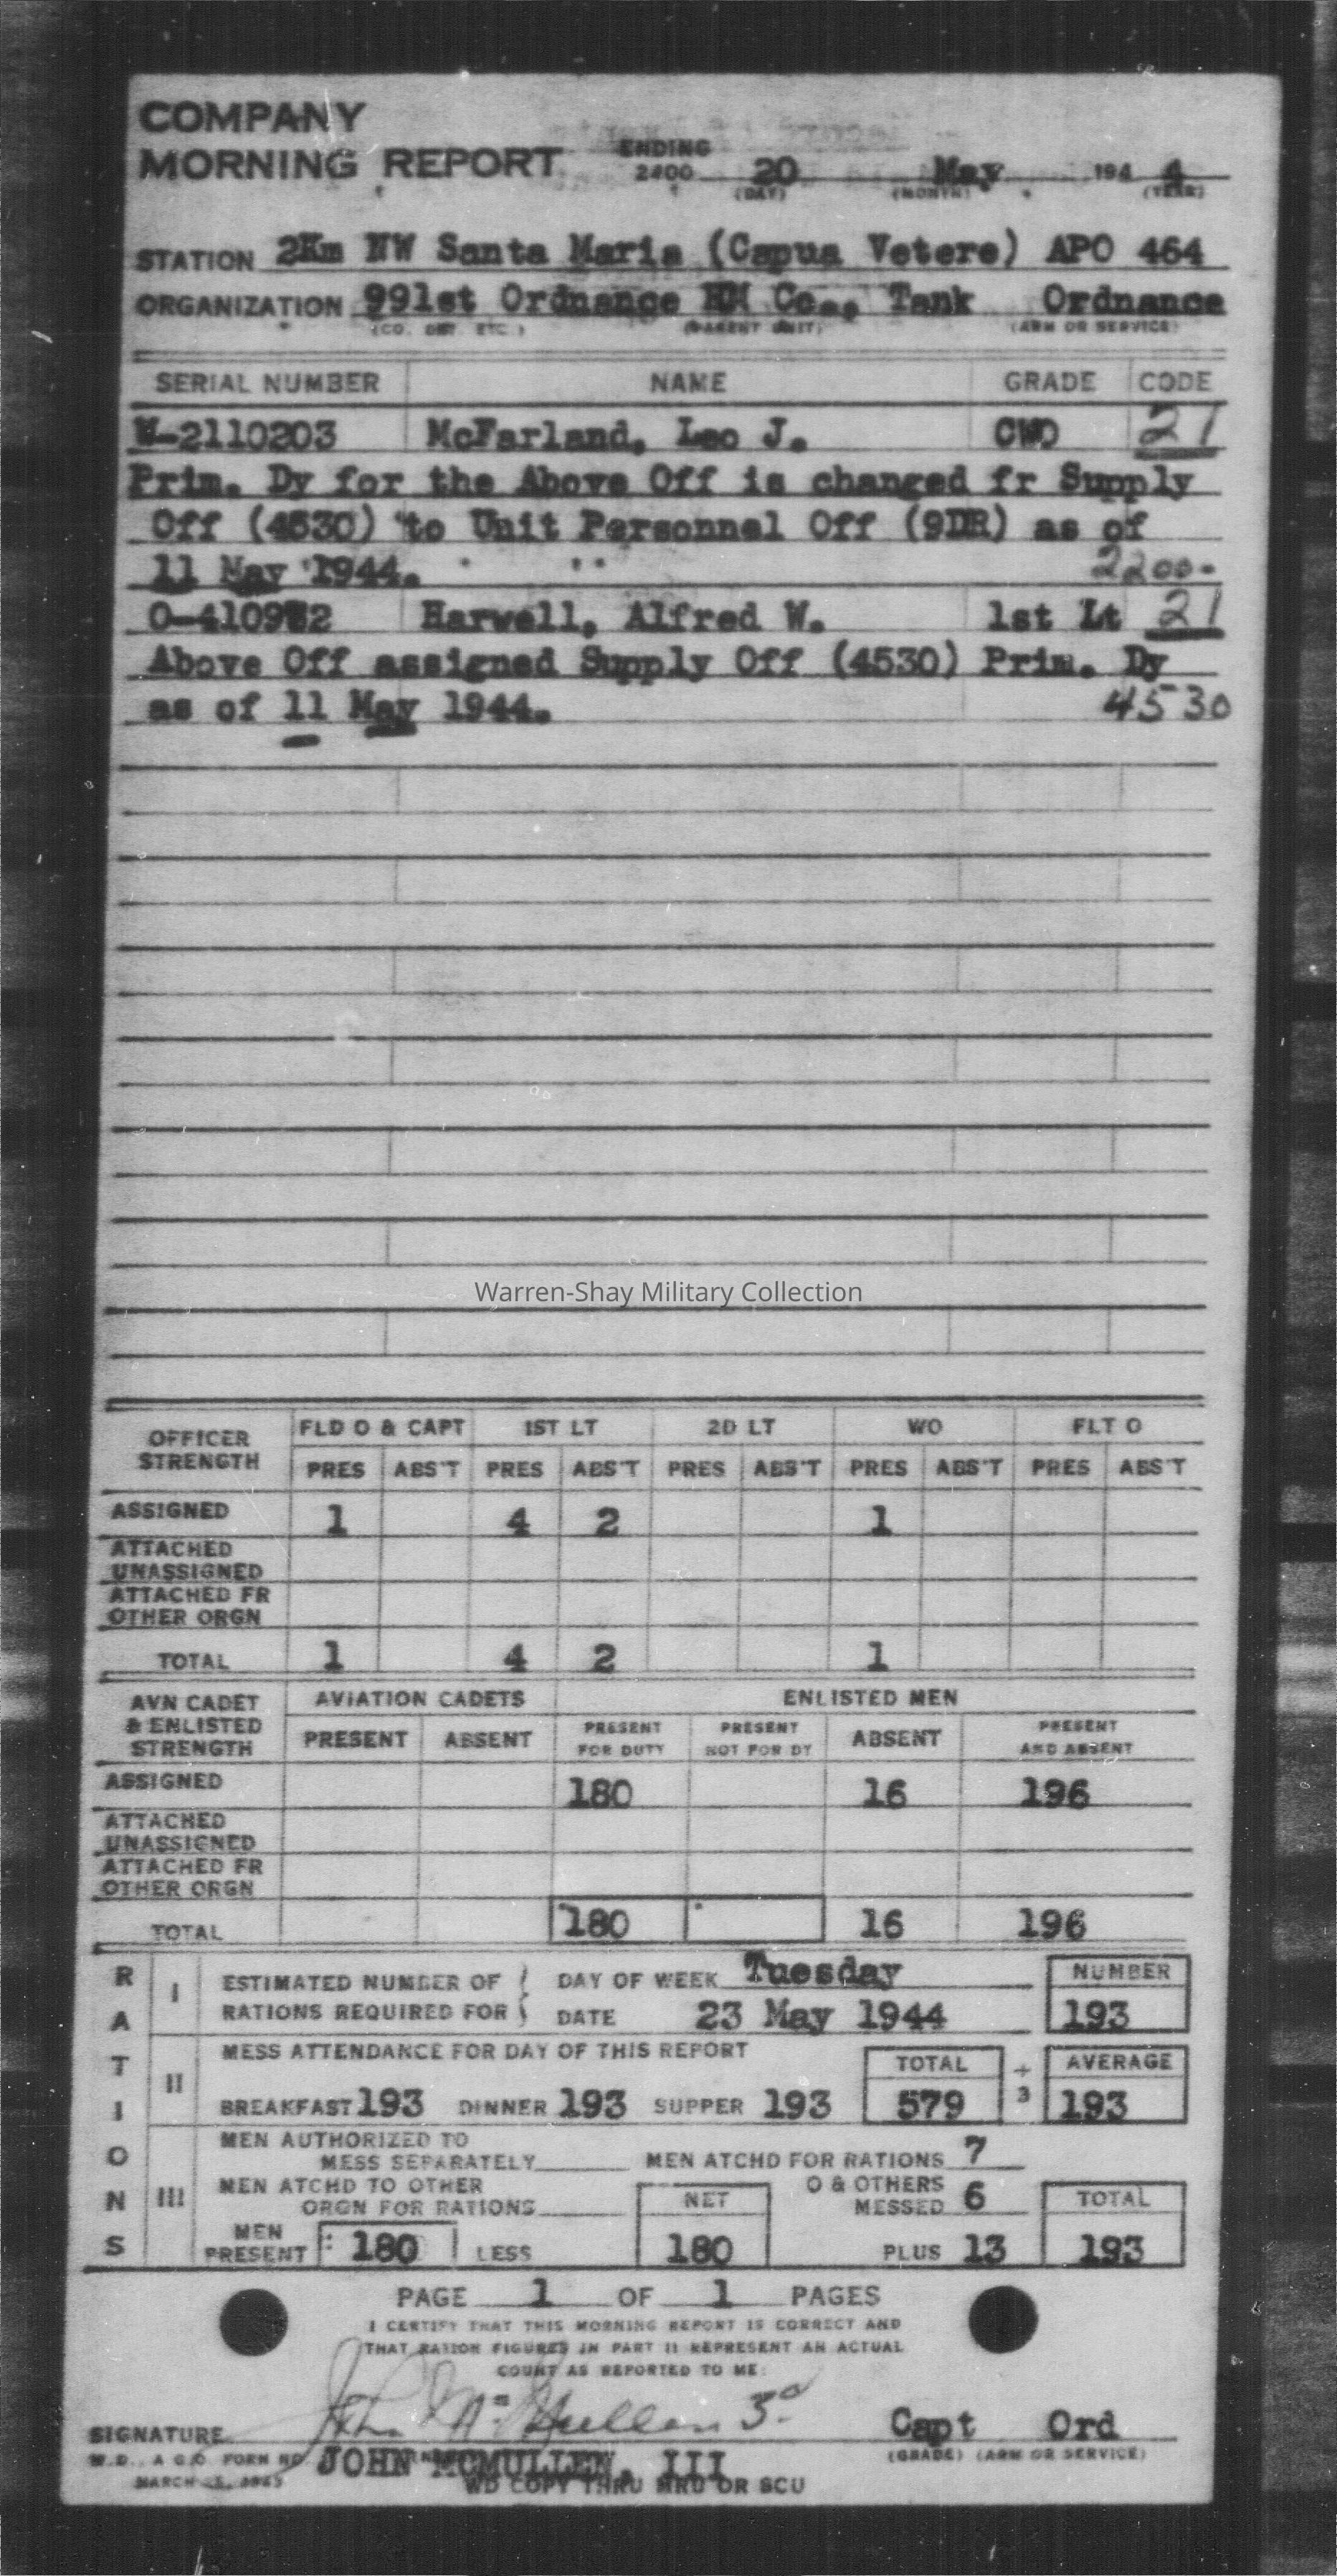 COMPANY
MORNING REPORT ENDING 2400 20 May 194 4
(DAY) (MONTH) (YEAR)
STATION 2Km NW Santa Maria (Capua Vetere) APO 464
ORGANIZATION 991st Ordnance HM Co., Tank Ordnance
(CO. DET. ETC.) (PARENT UNIT) (ARM OR SERVICE)
SERIAL NUMBER NAME GRADE CODE
W-2110203 McFarland, Leo J. CWO 21
Prim. Dy for the Above Off is changed fr Supply
Off (4530) to Unit Personnel Off (9DR) as of
11 May 1944. 2200
Harwell, Alfred W. 1st Lt 21
Above Off assigned Supply Off (4530) Prim. Dy
as of 11 May 1944. 4530
Warren-Shay Military Collection
OFFICER STRENGTH FLD O & CAPT 1ST LT 2D LT WO FLT O
PRES ABS'T PRES ABS'T PRES ABS'T PRES ABS'T PRES ABS'T
ASSIGNED 1 4 2 1
ATTACHED UNASSIGNED
ATTACHED FR OTHER ORGN
TOTAL 1 4 2 1
AVN CADET & ENLISTED STRENGTH AVIATION CADETS ENLISTED MEN
PRESENT ABSENT PRESENT FOR DUTY PRESENT NOT FOR DY ABSENT PRESENT AND ABSENT
ASSIGNED 180 16 196
ATTACHED UNASSIGNED
ATTACHED FR OTHER ORGN
TOTAL 180 16 196
RATIONS
I ESTIMATED NUMBER OF RATIONS REQUIRED FOR { DAY OF WEEK Tuesday NUMBER
DATE 23 May 1944 193
II MESS ATTENDANCE FOR DAY OF THIS REPORT TOTAL ÷ AVERAGE
BREAKFAST 193 DINNER 193 SUPPER 193 579 3 193
III MEN AUTHORIZED TO
MESS SEPARATELY MEN ATCHD FOR RATIONS 7
MEN ATCHD TO OTHER ORGN FOR RATIONS NET O & OTHERS MESSED 6 TOTAL
MEN PRESENT 180 LESS 180 PLUS 13 193
PAGE 1 OF 1 PAGES
I CERTIFY THAT THIS MORNING REPORT IS CORRECT AND
THAT RATION FIGURES IN PART II REPRESENT AN ACTUAL
COUNT AS REPORTED TO ME:
SIGNATURE John McMullen 3d Capt Ord
W.D., A.G.O. FORM NO. JOHN MCMULLEN, III (GRADE) (ARM OR SERVICE)
MARCH WD COPY THRU MRU OR SCU